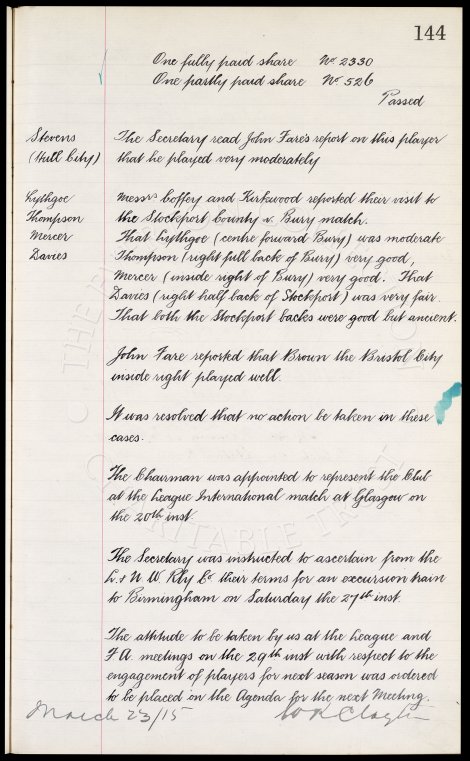 144
One fully paid share No 2330
One partly paid share No 526
Passed
Stevens
(Hull City)
The Secretary read John Fare's report on this player
that he played very moderately
Lythgoe
Thompson
Mercer
Davies
Messrs Coffey and Kirkwood reported their visit to
the Stockport County v. Bury match.
That Lythgoe (centre forward Bury) was moderate
Thompson (right full back of Bury) very good,
Mercer (inside right of Bury) very good. That
Davies (right half back of Stockport) was very fair.
That both the Stockport backs were good but ancient.
John Fare reported that Brown the Bristol City
inside right played well.
It was resolved that no action be taken in these
cases.
The Chairman was appointed to represent the Club
at the League International match at Glasgow on
the 20th inst.
The Secretary was instructed to ascertain from the
L. & N. W. Rly Co their terms for an excursion train
to Birmingham on Saturday the 27th inst.
The attitude to be taken by us at the League and
F.A. meetings on the 29th inst with respect to the
engagement of players for next season was ordered
to be placed on the Agenda for the next Meeting.
March 23/15
W R Clayton